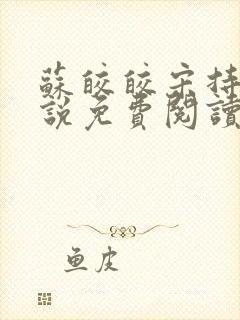 蘇皎皎宋持
說免費閱讀
鱼皮